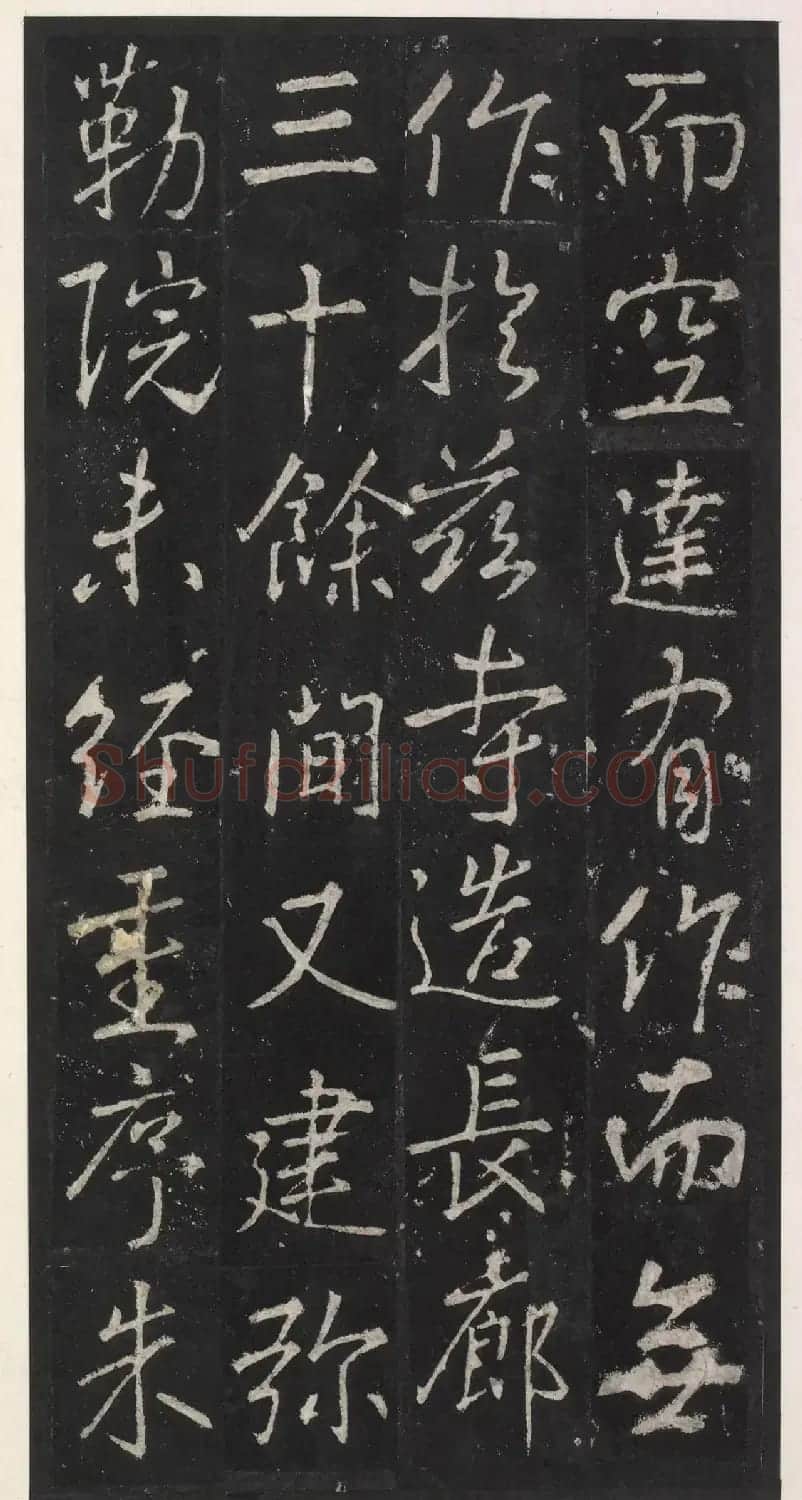 而空達有作而無
作於茲寺造長廊
三十餘間又建弥
勒院未經重序朱
Shufaziliao.COM